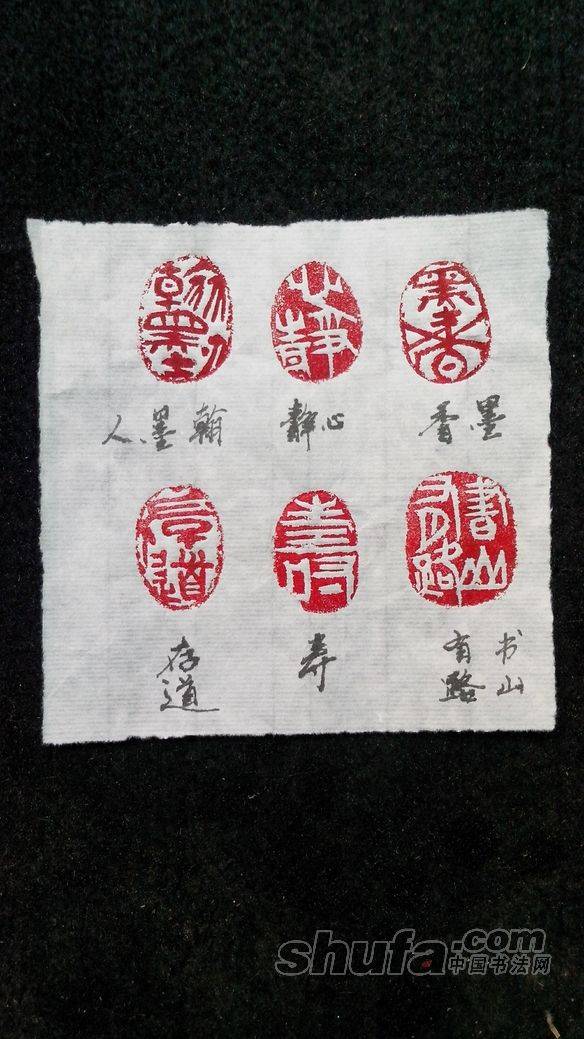 墨香
心静
翰墨人
书山
有路
寿
存道
shufa.com
中国书法网